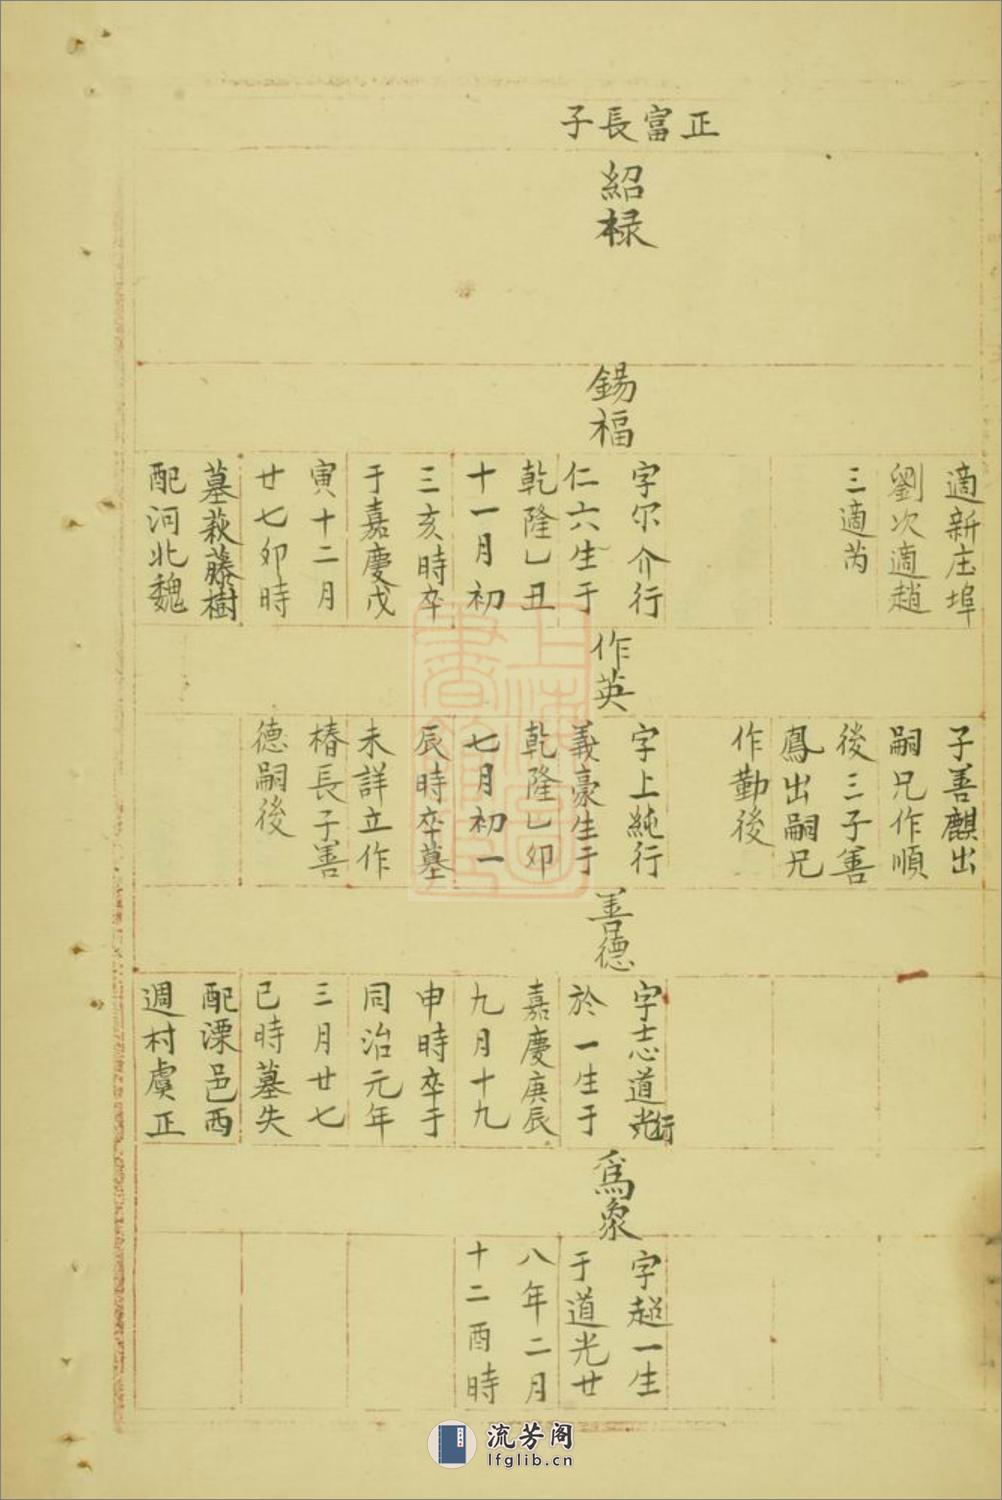 正富長子
紹祿
錫福
適新庄埠
劉次適趙
三適芮
字尔介行
仁六生于
乾隆乙丑
十一月初
三亥時卒
于嘉慶戊
寅十二月
廿七卯時
墓萩藤樹
配河北魏
作英
子善麒出
嗣兄作順
後三子善
鳳出嗣兄
作勤後
字上純行
義豪生于
乾隆乙卯
七月初一
辰時卒墓
未詳立作
椿長子善
德嗣後
善德
字志道行光
於一生于
嘉慶庚辰
九月十九
申時卒于
同治元年
三月廿七
巳時墓失
配溧邑西
週村虞正
爲衆
字超一生
于道光廿
八年二月
十二酉時
流芳阁
lfglib.cn